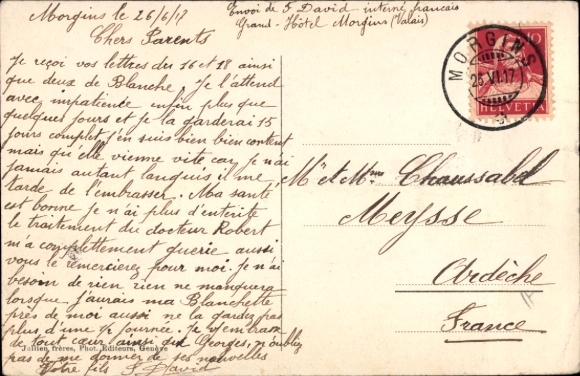 Morgins le 26/6/17
Envoi de F David interné français
Grand-Hôtel Morgins (Valais)
Chers Parents
Je reçoi vos lettres du 16 et 18 ainsi
que deux de Blanche, Je l'attend
avec impatience enfin plus que
quelques jours et je la garderai 15
jours complet, j'en suis bien bien content
mais qu'elle vienne vite car je n'ai
jamais autant languis il me
tarde de l'embrasser. Ma santé
est bonne je n'ai plus d'enterite
le traitement du docteur Robert
m'a complettement guerie aussi
vous le remercierez pour moi. Je n'ai
besoin de rien rien ne manquera
lorsque j'aurais ma Blanchette
près de moi aussi ne la gardez pas
plus d'une journée. Je vous embrasse
de tout cœur ainsi que Georges, n'oubliez
pas de me donner de ses nouvelles
Votre fils F David
Jullien frères, Phot. Editeurs, Genève
MORGINS
26.VI.17
10
HELVETIA
Mr et Mme Chaussabel
Meysse
Ardèche
France